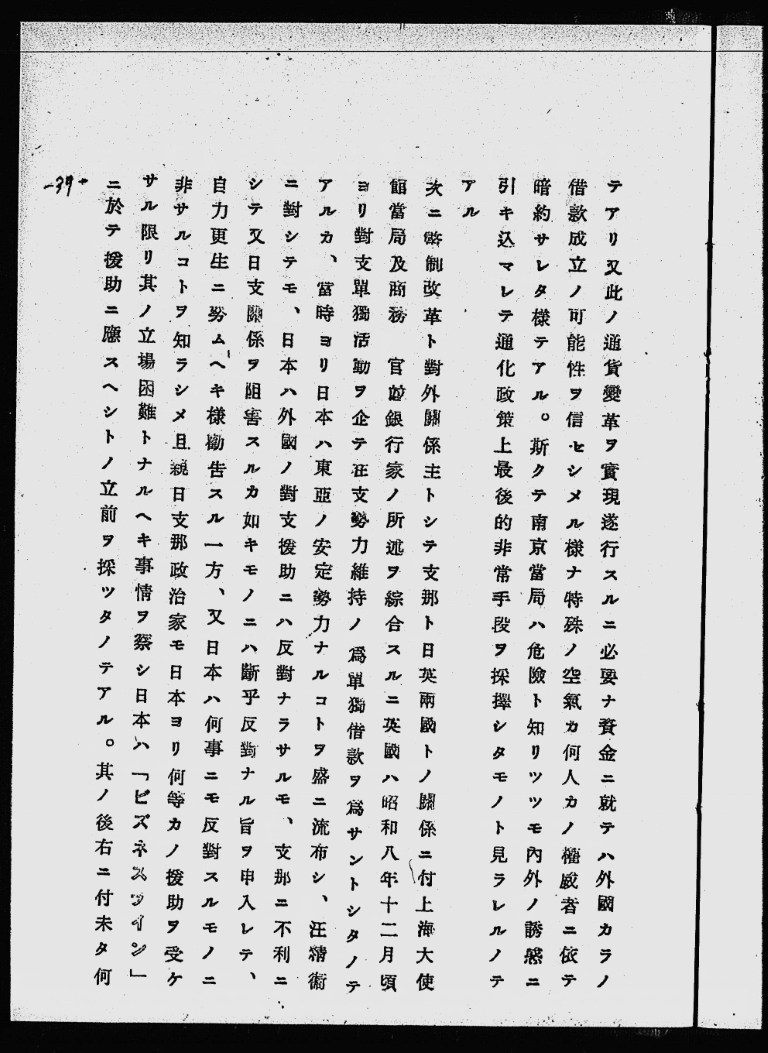 テアリ又此ノ通貨變革ヲ實現遂行スルニ必要ナ資金ニ就テハ外國カラノ
借款成立ノ可能性ヲ信セシメル様ナ特殊ノ空氣カ何人カノ權威者ニ依テ
暗約サレタ様テアル。斯クテ南京當局ハ危險ト知リツツモ內外ノ誘惑ニ
引キ込マレテ通化政策上最後的非常手段ヲ採擇シタモノト見ラレルノテ
アル
次ニ幣制改革ト對外關係主トシテ支那ト日英兩國トノ關係ニ付上海大使
館當局及商務官竝銀行家ノ所述ヲ綜合スルニ英國ハ昭和八年十二月頃
ヨリ對支單獨活動ヲ企テ在支勢力維持ノ爲單獨借款ヲ爲サントシタノテ
アルカ、當時ヨリ日本ハ東亞ノ安定勢力ナルコトヲ盛ニ流布シ、汪精衞
ニ對シテモ、日本ハ外國ノ對支援助ニハ反對ナラサルモ、支那ニ不利ニ
シテ又日支關係ヲ阻害スルカ如キモノニハ斷乎反對ナル旨ヲ申入レテ、
自力更生ニ努ムヘキ様勸告スル一方、又日本ハ何事ニモ反對スルモノニ
非サルコトヲ知ラシメ且親日支那政治家モ日本ヨリ何等カノ援助ヲ受ケ
サル限リ其ノ立場困難トナルヘキ事情ヲ察シ日本ハ「ビズネスライン」
ニ於テ援助ニ應スヘシトノ立前ヲ採ツタノテアル。其ノ後右ニ付未タ何
-39-